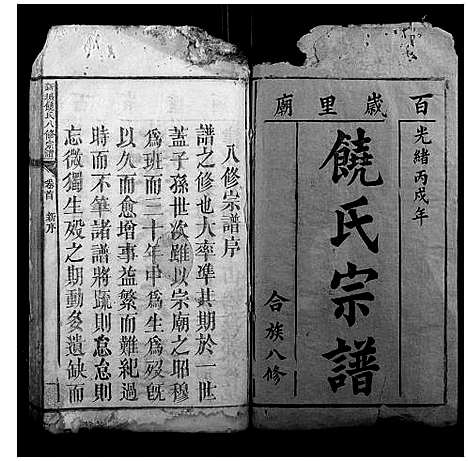 百歲里廟
光緒丙戌年
饒氏宗譜
合族八修
八修宗譜序
譜之修也大率準其期於一世
蓋子孫世次雖以宗廟之昭穆
為班而三十年中為生為歿旣
以久而愈增事益繁而難紀過
時而不筆諸譜將疏則怠怠則
忘微獨生殁之期動多遺缺而
饒氏八修宗譜
卷首
新序